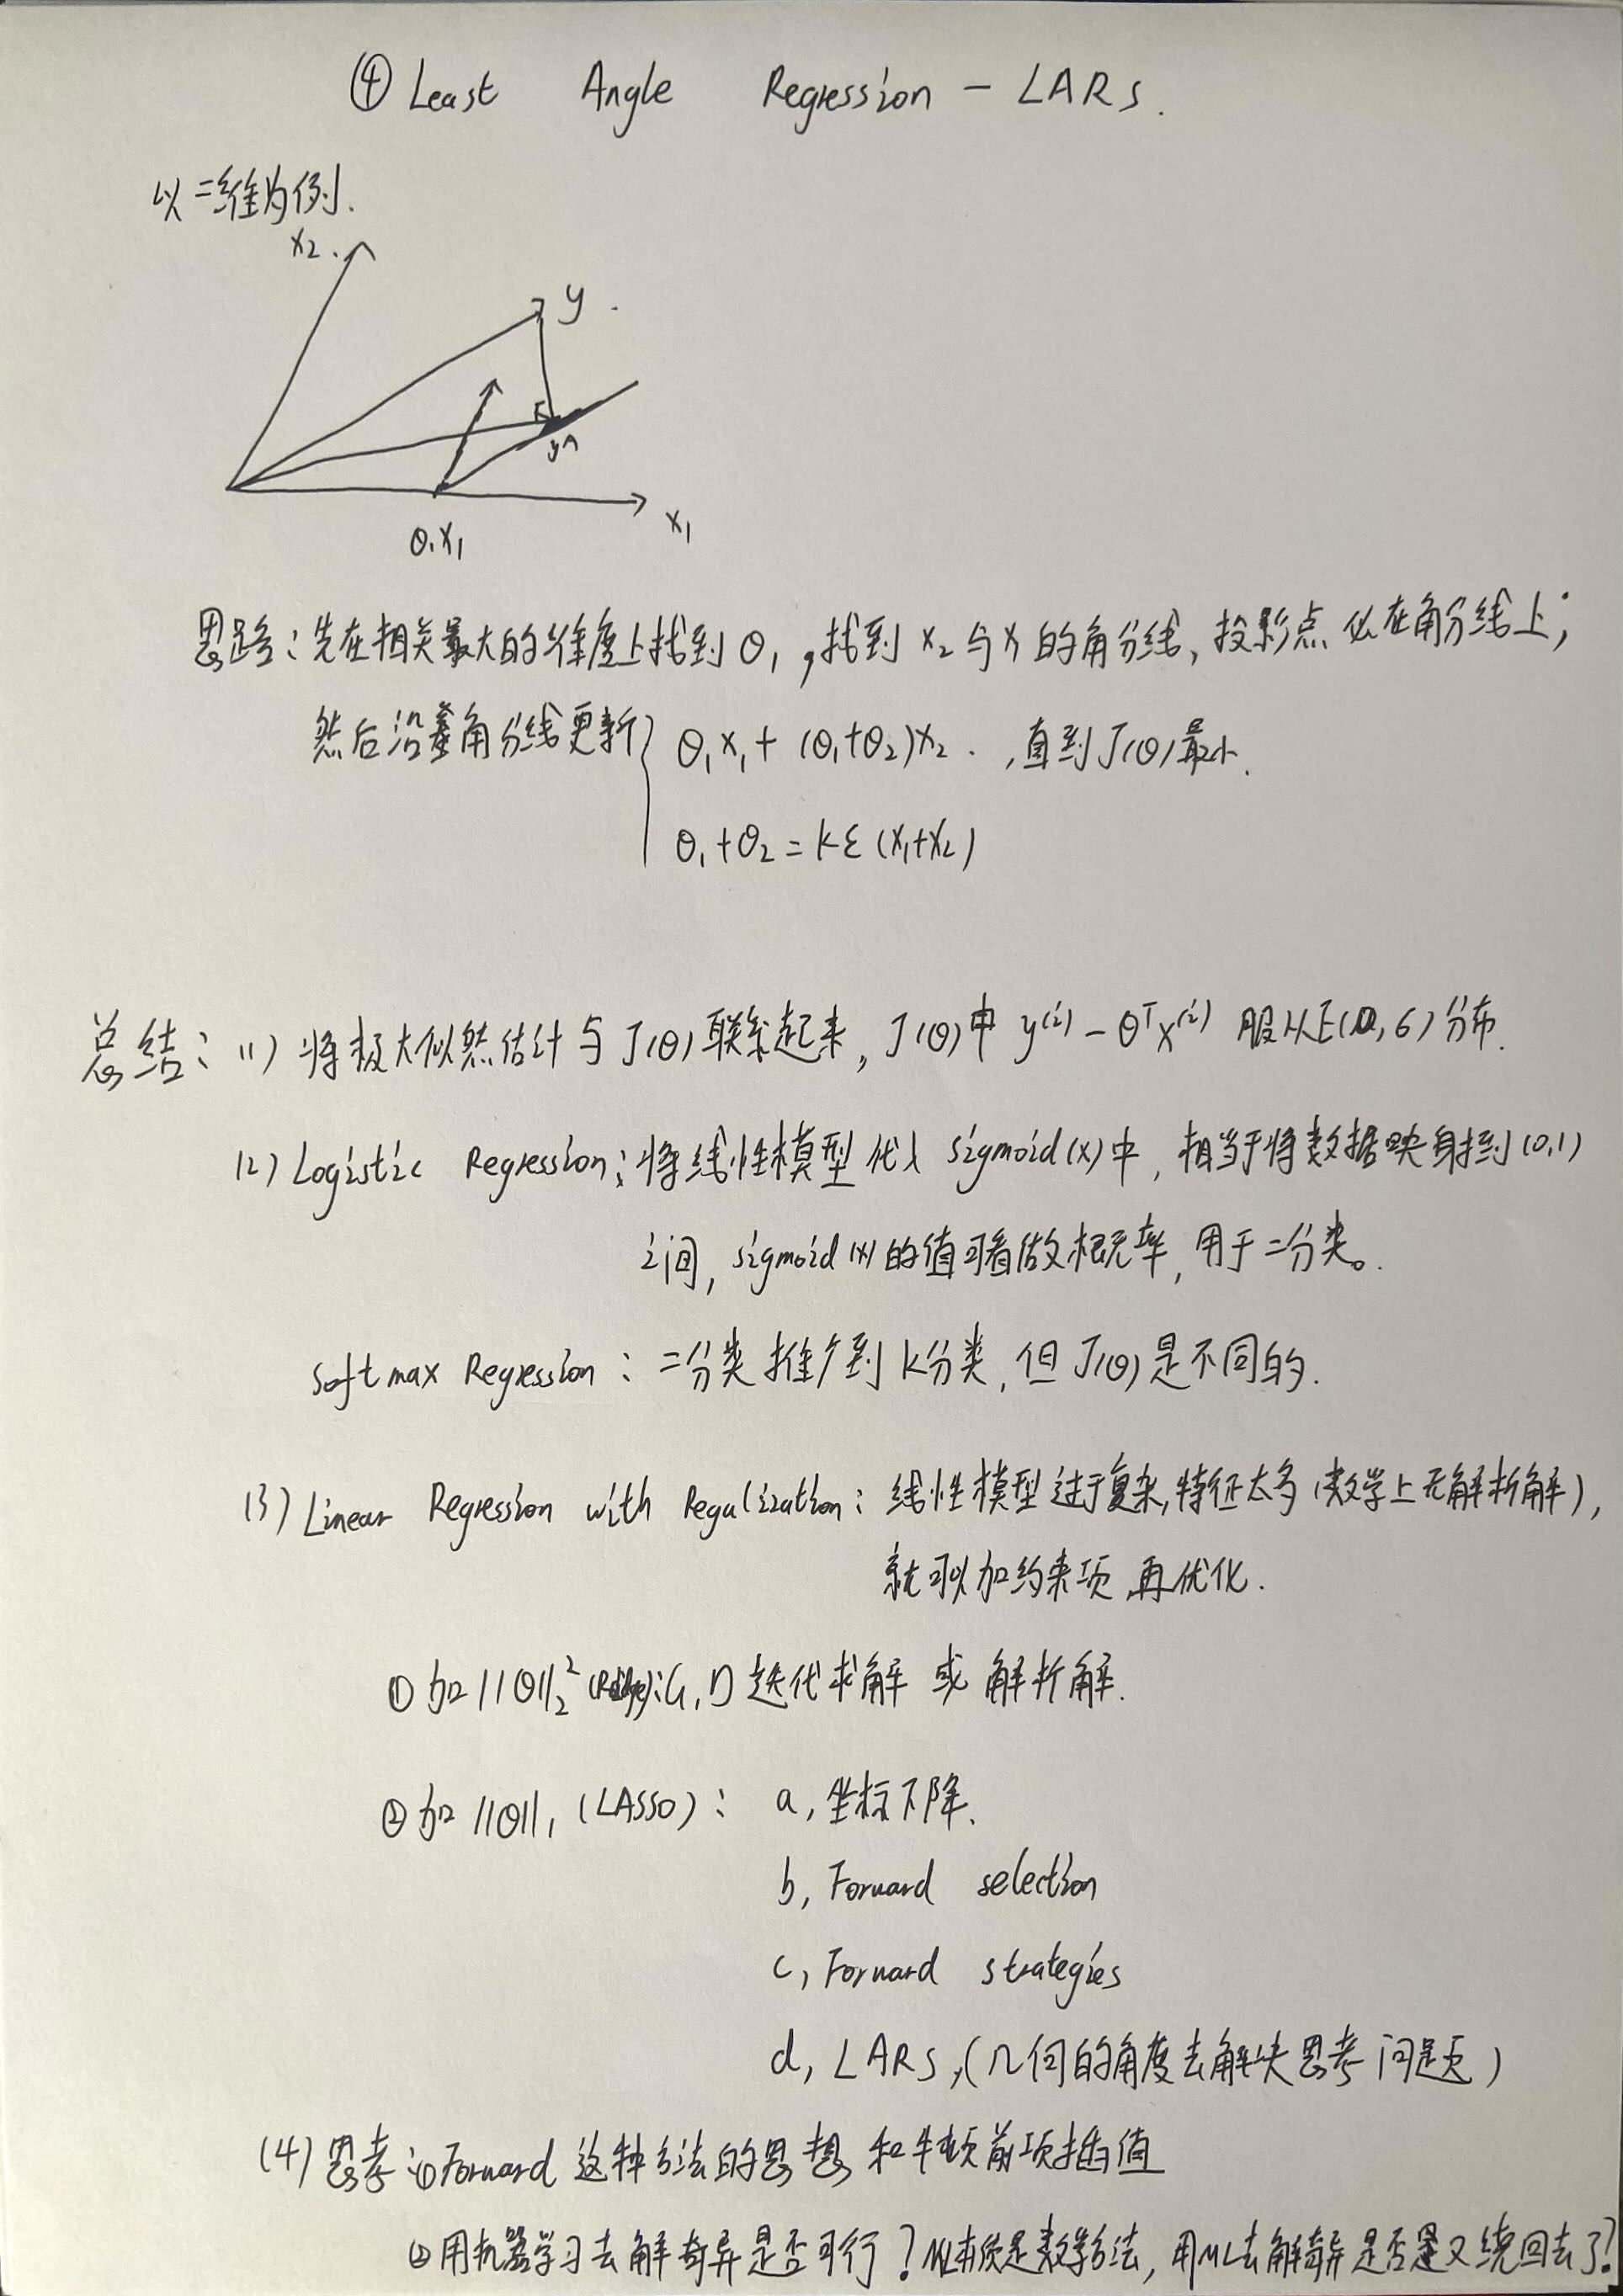 ④ Least Angle Regression - LARs.
以二维为例.
x₂.
y.
y^
θ₁x₁
x₁
思路：先在相关最大的维度上找到θ₁,找到x₂与x的角分线、投影点必在角分线上；
然后沿着角分线更新{ θ₁x₁+(θ₁+θ₂)x₂ . ,直到J(θ)最小.
θ₁+θ₂=kε(x₁+x₂)
总结：(1) 将极大似然估计与J(θ)联系起来, J(θ)中 y⁽ⁱ⁾-θᵀx⁽ⁱ⁾ 服从E(0,6)分布.
(2) Logistic Regression：将线性模型代入 sigmoid(x)中, 相当于将数据映射到(0,1)
之间, sigmoid(x)的值可看做概率, 用于二分类。
Softmax Regression：二分类推广到k分类, 但J(θ)是不同的.
(3) Linear Regression with Regulization：线性模型过于复杂,特征太多(数学上无解析解),
就可以加约束项再优化.
① 加||θ||₂² (Ridge):G,D 迭代求解 或 解析解.
② 加||θ||₁ (LASSO)： a, 坐标下降.
b, Forward selection
c, Forward strategies
d, LARS,(几何的角度去解决思考问题)
(4) 思考：①Forward 这种方法的思想和牛顿前项插值
②用机器学习去解奇异是否可行？ML本质是数学方法, 用ML去解奇异是否是又绕回去了?